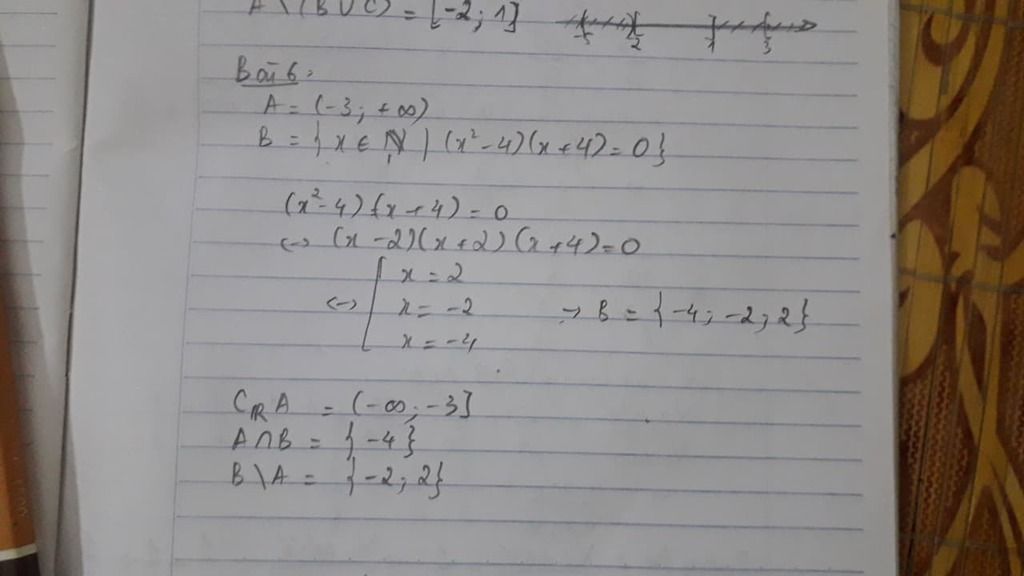 A \ (B ∪ C) = [-2; 1]
-5 -2 1 3
Bài 6:
A = (-3; +∞)
B = { x ∈ N | (x² - 4)(x + 4) = 0}
(x² - 4)(x + 4) = 0
↔ (x - 2)(x + 2)(x + 4) = 0
↔ [ x = 2
x = -2 → B = {-4; -2; 2}
x = -4
CℝA = (-∞; -3]
A ∩ B = {-4}
B \ A = {-2; 2}